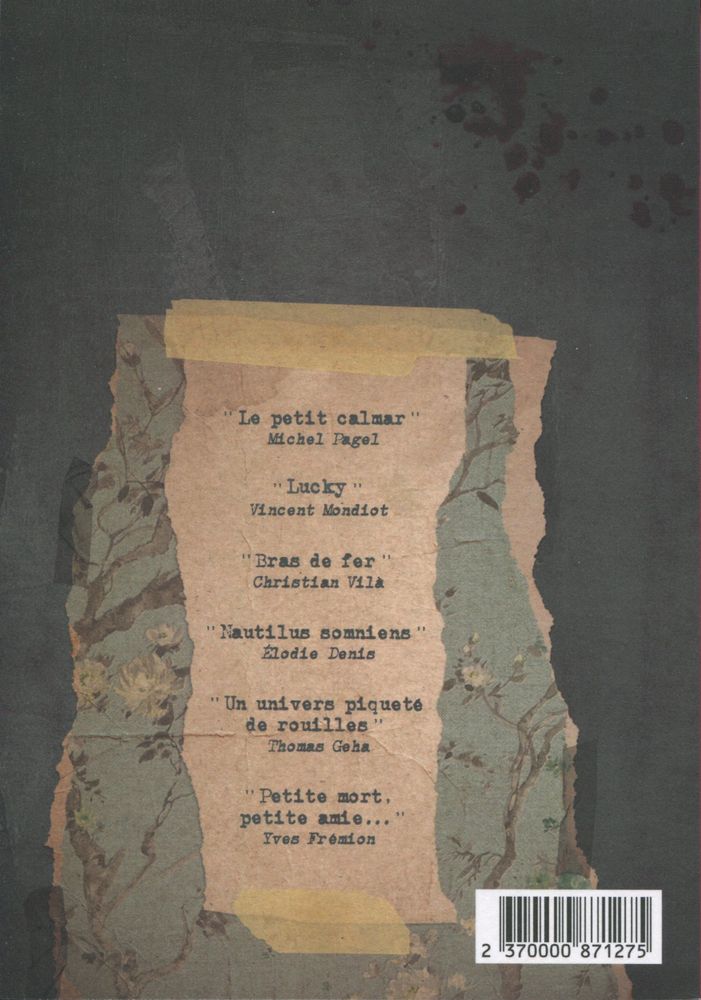 "Le petit calmar"
Michel Pagel
"Lucky"
Vincent Mondiot
"Bras de fer"
Christian Vilà
"Nautilus somniens"
Élodie Denis
"Un univers piqueté
de rouilles"
Thomas Geha
"Petite mort,
petite amie..."
Yves Frémion
2 370000 871275